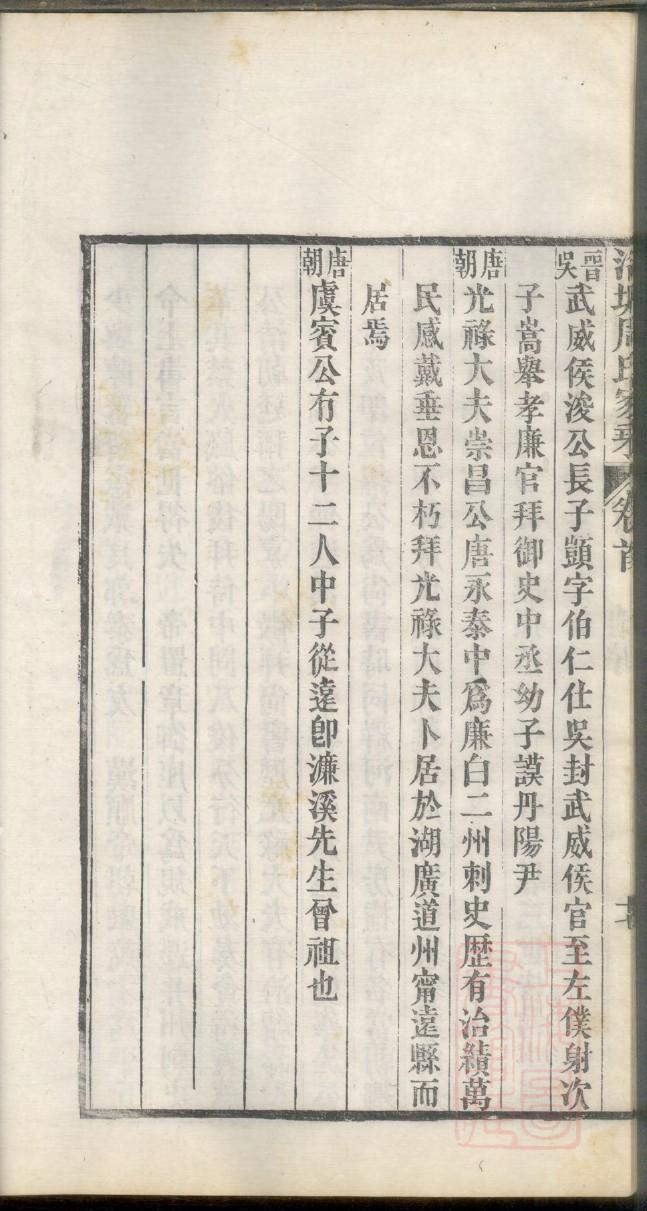 周氏家乘 卷首
晉吳 武威侯浚公長子顗字伯仁仕吳封武威侯官至左僕射次
子嵩舉孝廉官拜御史中丞幼子謨丹陽尹
唐朝 光祿大夫崇昌公唐永泰中爲廉白二州刺史歴有治績萬
民感戴垂恩不朽拜光祿大夫卜居於湖廣道州甯遠縣而
居焉
唐朝 虞賓公有子十二人中子從遠卽濂溪先生曾祖也